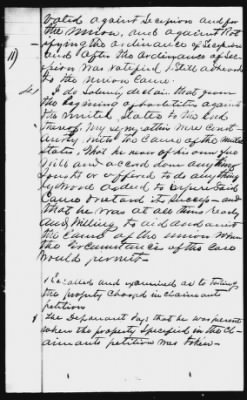 voted against Secession and for
the Union, and against Rat
ifying the ordinance of Secession
and after the ordinance of Sec
ession was ratified I still adhered
to the Union Cause.
I do Solemnly declair that from
the begining of hostilities against
the United States to the End
thereof, my sympathies were Const
antly with the Cause of the United
States; that he never of his own free
Will and accord done anything
or offerd to do anything
by Word or deed to injure Said
Cause or retard its Success - and
that he was at all times ready
and Willing to aid and assist
the Cause of the Union When
the Circumstances of the Case
Would permit -
Recalled and examined as to taking
the property Charged in claimants
petition
1 The Deponant Says that he was present
when the property Specified in the Cl-
aimant petition was taken -